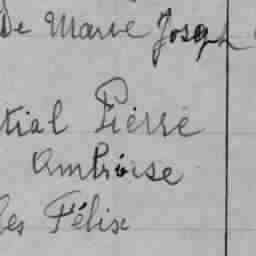 De Marie Joseph
tial Pierre
Ambroise
les Félix